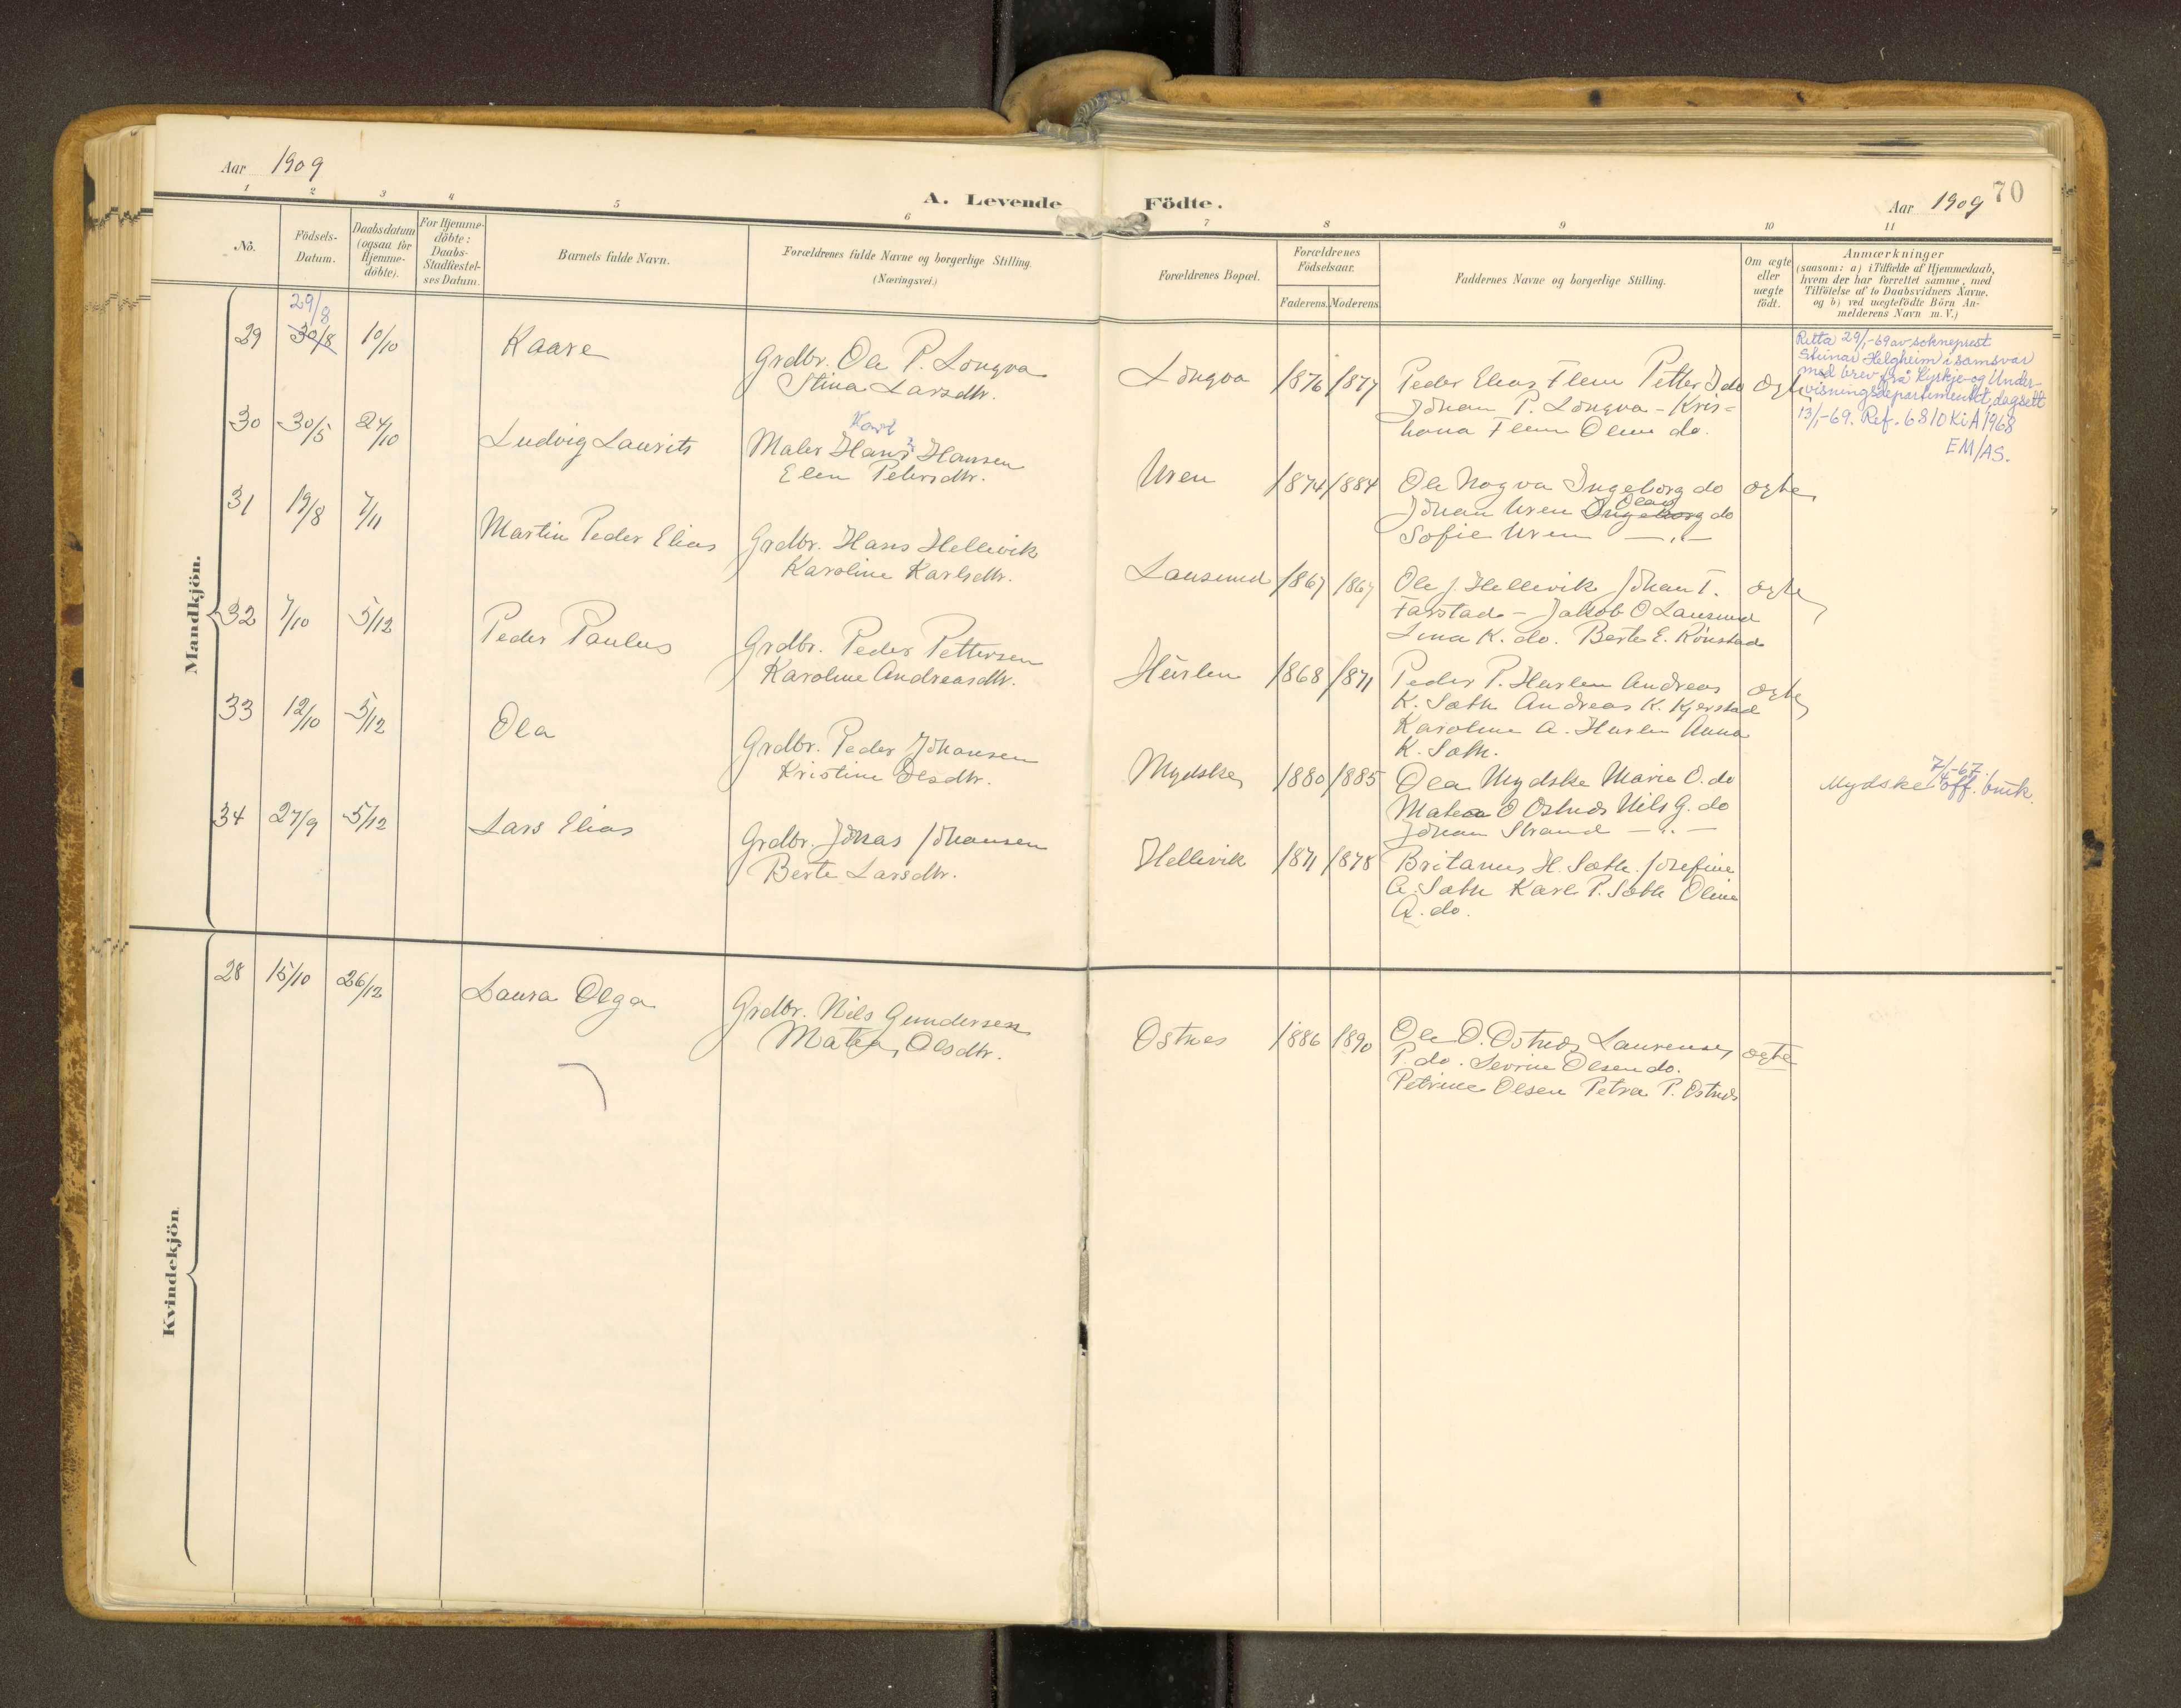 Aar 1909
A. Levende Födte.
Aar 1909 70
1 2 3 4 5 6 7 8 9 10 11
No.
Födsels-
Datum.
Daabsdatum
(ogsaa for
Hjemme-
döbte).
For Hjemme-
döbte:
Daabs-
Stadfæstel-
ses Datum.
Barnets fulde Navn.
Forældrenes fulde Navne og borgerlige Stilling.
(Næringsvei.)
Forældrenes Bopæl.
Forældrenes
Födselsaar.
Faderens. Moderens.
Faddernes Navne og borgerlige Stilling.
Om ægte
eller
uægte
födt.
Anmærkninger
(saasom: a) i Tilfælde af Hjemmedaab,
hvem der har forrettet samme, med
Tilföielse af to Daabsvidners Navne,
og b) ved uægtefödte Börn An-
melderens Navn m. V.)
Mandkjön.
29 29/8 30/8 10/10 Kaare
Grdbr. Ole P. Longva
Stina Larsdtr.
Longva 1876 1877
Peder Elias Flem Petter J do
Johan P. Longva - Kris-
Flem Oline do.
Retta 29/1-69 av sokneprest
Steinar Helgheim i samsvar
med brev frå Kyrkje- og Under-
visningsdepartementet, dagsett
13/1-69. Ref. 6810 Ki A 1968
EM/AS.
30 30/5 24/10 Ludvig Laurits
Karl
Maler Hans Hansen
Elen Petersdtr.
Uren 1874 1884
Ole Nogva Ingeborg do
Johan Uren Ingeborg Olav do
Sofie Uren —„—
ægte
31 19/8 7/11 Martin Peder Elias
Grdbr. Hans Hellevik
Karoline Karlsdtr.
Lausund 1867 1867
Ole J. Hellevik Johan T.
Farstad - Jakob O Lausund
Lina K. do. Berte E. Rönstad
ægte
32 7/10 5/12 Peder Paulus
Grdbr. Peder Pettersen
Karoline Andreasdtr.
1868 1871
Peder P. Andreas
K. Sæth Andreas K. Kjerstad
Karoline A. Anna
K. Sæth.
ægte
33 12/10 5/12 Ola
Grdbr. Peder Johansen
Kristine Olsdtr.
Mydske 1880 1885
Ola Mydske Marie O. do
Matea O Ostnes Nils G. do
Johan Strand —„—
Mydske 7/4-67. off. bruk.
34 27/9 5/12 Lars Elias
Grdbr. Jonas Johansen
Berte Larsdtr.
Hellevik 1871 1878
Britanus H. Sæth. Josefine
A. Sæth Karl P. Sæth Oline
A. do.
Kvindekjön
28 15/10 26/12 Laura Olga
Grdbr. Nils Gundersen
Matea Olsdtr.
Ostnes 1886 1890
Ole O. Ostnes Laurense
P. do. Sevrine Olsen do.
Petrine Olsen Petra P. Ostnes
ægte